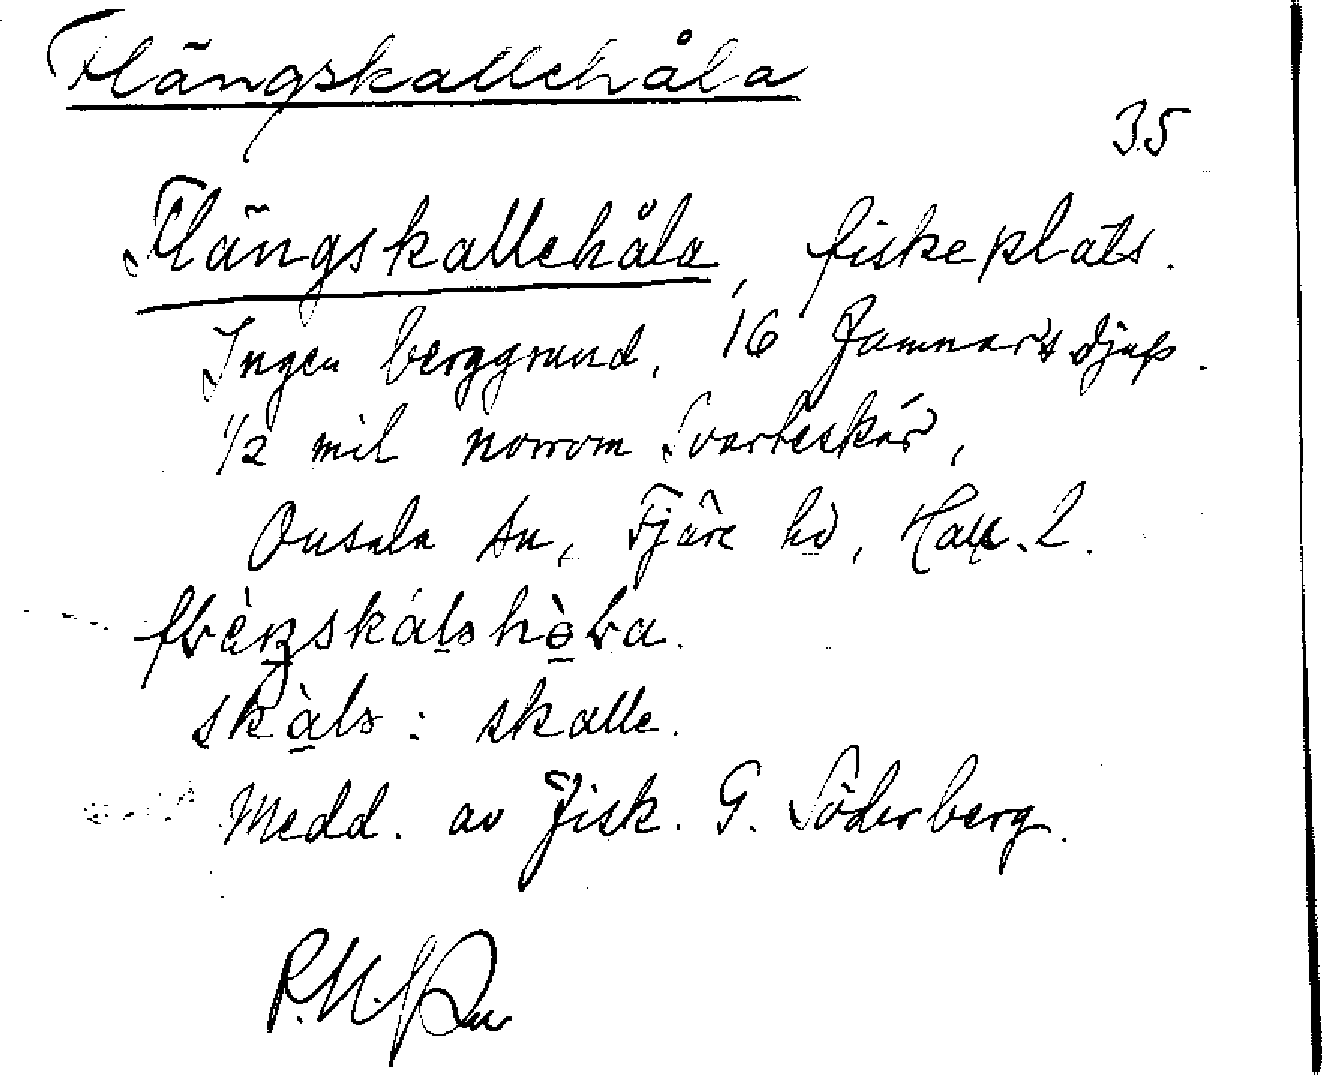 Flängskallehåla
35
Flängskallehåla, fiskeplats.
Ingen berggrund, 16 famnars djup.
1/2 mil norrom Svarteskär,
Onsala sn, Fjäre hd, Hall. l.
skàlə: skalle.
Medd. av fisk. G. Söderberg.